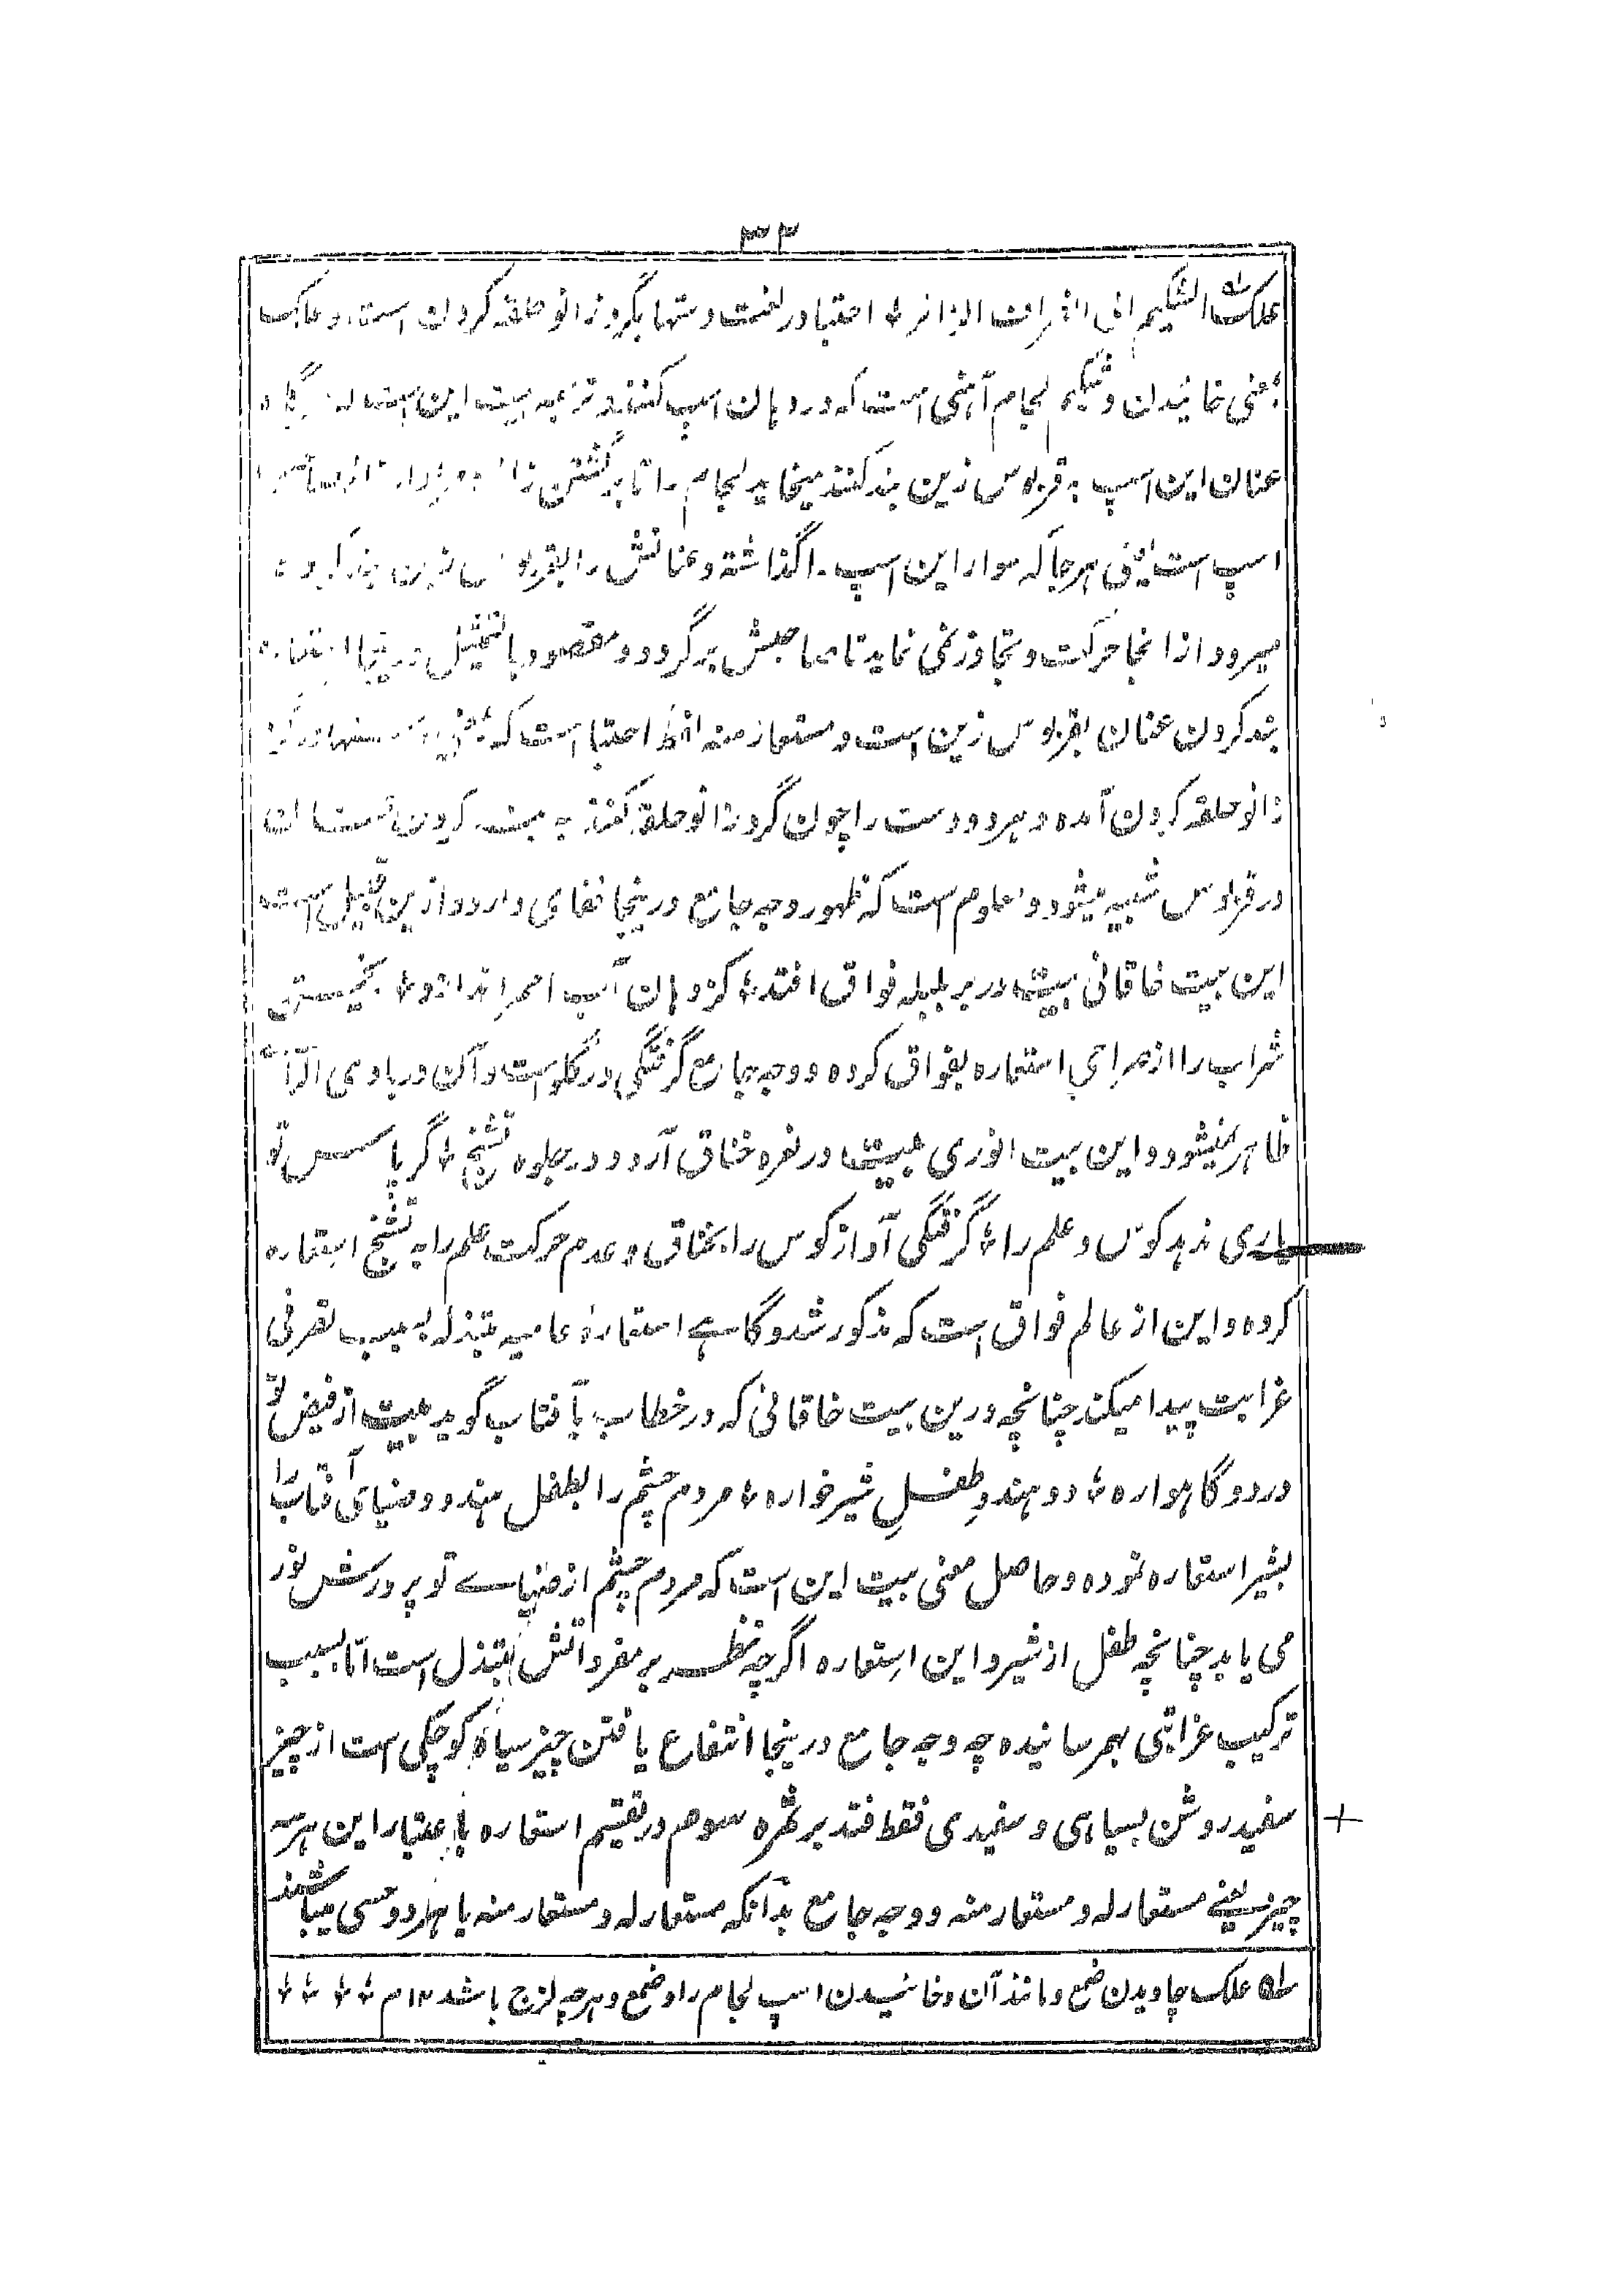 ۳۳
علک الشکیم الی انصراف الزائر ؛ احتبا در لغت دستها بگرد زانو حلقه کردن است و علک
بمعنی خائیدن و شکیم لجام آهنی است که در دهان اسپ کنند و ترجمه بیت این است
عنان این اسپ بقربوس زین بند کنند میخاید لجام را تا برگشتن
اسپ است یعنی هرجا که سوار این اسپ را گذاشته و عنانش را بقربوس زین بند کرده
میرود از انجا حرکت و تجاوز نمی نماید تا صاحبش برگردد و مقصود با تمثیل درینجا استعاره
بند کردن عنان بقربوس زین است و مستعار منه لفظ احتبا است که بمعنی دستها در گرد
زانو حلقه کردن آمده و هر دو دست را چون گرد زانو حلقه کنند به بند کردن عنان
در قربوس شبیه میشود و معلوم است که ظهور وجه جامع درینجا خفای دارد و ازین قبیل است
این بیت خاقانی بیت در بر بلبله فواق افتد ؛ کز دهان آب احمر اندازد ؛ بخیستن
شراب را از صراحی استعاره بفواق کرده و وجه جامع گرفتگی در گلو است و آن در بادی الرأی
ظاهر نمیشود و این بیت انوری بیت در نعره خناق آرد و در جلوه تشنج ؛ گر پاس تو
یاری ندهد کوس و علم را ؛ گرفتگی آواز کوس را بخناق و عدم حرکت علم را به تشنج استعاره
کرده و این از عالم فواق است که مذکور شد و گاهے استعارهٔ عامیه مبتذله بسبب تصرفی
غرابت پیدا میکند چنانچه درین بیت خاقانی که در خطاب بآفتاب گوید بیت از فیض تو
در دو گاهواره ؛ دو هندوِ طفلِ شیر خواره ؛ مردم چشم را بطفل هندو و ضیای آفتاب را
بشیر استعاره نموده و حاصل معنی بیت این است که مردم چشم از ضیاے تو پرورش نور
می یابد چنانچه طفل از شیر و این استعاره اگرچه نظر بر مفرداتش مبتذل است امّا بسبب
ترکیب غرابتی بهم رسانیده چه وجه جامع درینجا انتفاع یافتن چیز سیاه کوچکی است از چیز
سفید روشن بسیاهی و سفیدی فقط فتدبر ثمره سوم در تقسیم استعاره باعتبار این هر سه
چیز یعنے مستعار له و مستعار منه و وجه جامع بدآنکه مستعار له و مستعار منه یا هر دو حسی میباشند
له علک چاویدن صمغ و مانند آن و خائیدن اسپ لجام را و صمغ و هرچه لزج باشد ۱۲ م ؛ ؛ ؛ ؛